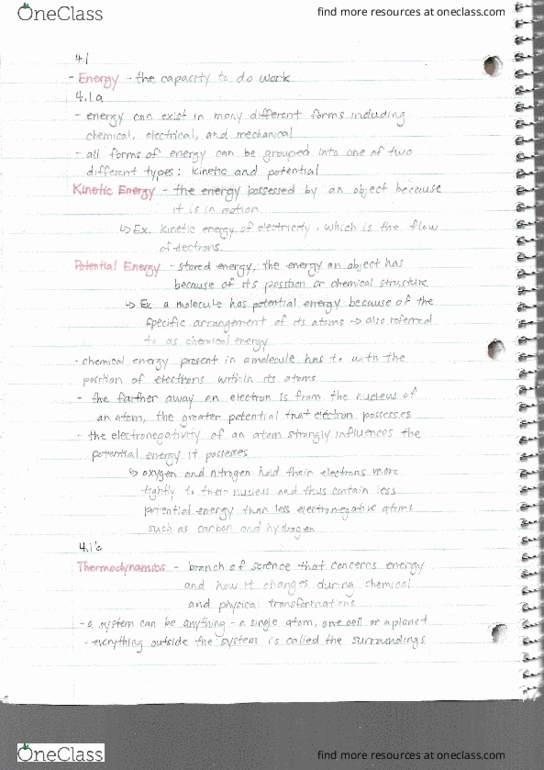 OneClass
find more resources at oneclass.com
4.1
- Energy - the capacity to do work
4.1a
- energy can exist in many different forms including
chemical, electrical, and mechanical
- all forms of energy can be grouped into one of two
different types: kinetic and potential
Kinetic Energy - the energy possessed by an object because
it is in motion
↳ Ex. Kinetic energy of electricity, which is the flow
of electrons.
Potential Energy - stored energy, the energy an object has
because of its position or chemical structure
↳ Ex a molecule has potential energy because of the
specific arrangement of its atoms → also referred
to as chemical energy
- chemical energy present in a molecule has to with the
position of electrons within its atoms
- the farther away an electron is from the nucleus of
an atom, the greater potential that electron possesses
- the electronegativity of an atom strongly influences the
potential energy it possesses
↳ oxygen and nitrogen hold their electrons more
tightly to their nucleus and thus contain less
potential energy than less electronegative atoms
such as carbon and hydrogen
4.1b
Thermodynamics - branch of science that concerns energy
and how it changes during chemical
and physical transformations
- a system can be anything - a single atom, one cell or a planet
- everything outside the system is called the surroundings
OneClass
find more resources at oneclass.com